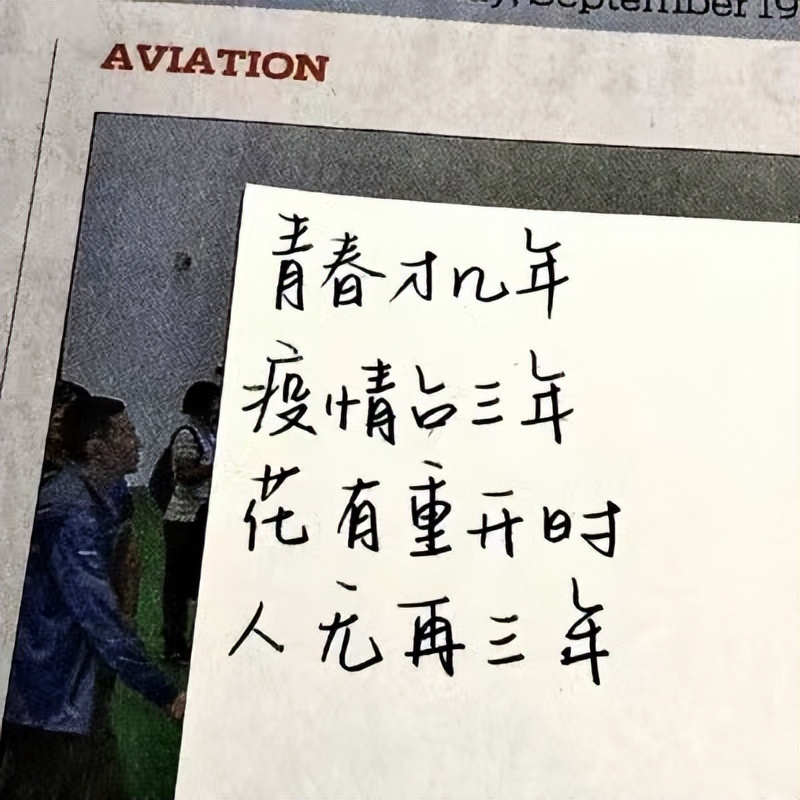 September 19
AVIATION
青春才几年
疫情占三年
花有重开时
人无再三年